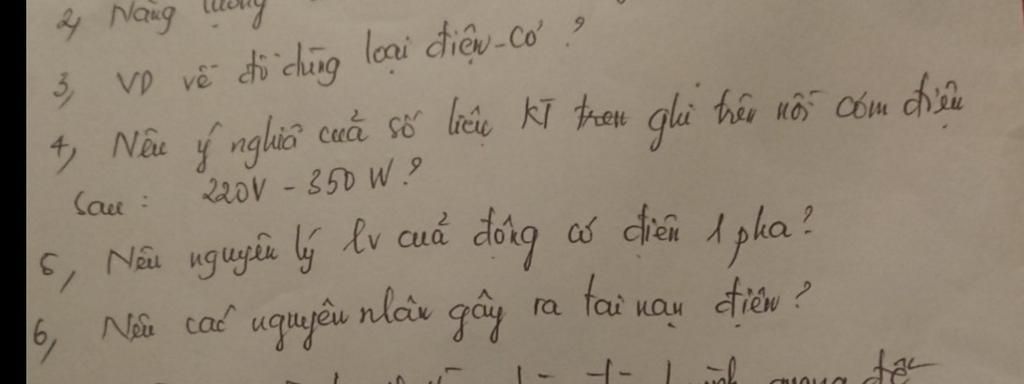 2, Năng lượng
3, VD về đồ dùng loại điện-cơ ?
4, Nêu ý nghĩa cuả số liệu KT ghi trên nồi cơm điện
sau : 220V - 350 W ?
5, Nêu nguyên lý lv cuả động cơ điên 1 pha ?
6, Nêu các nguyên nhân gây ra tai nạn điện ?